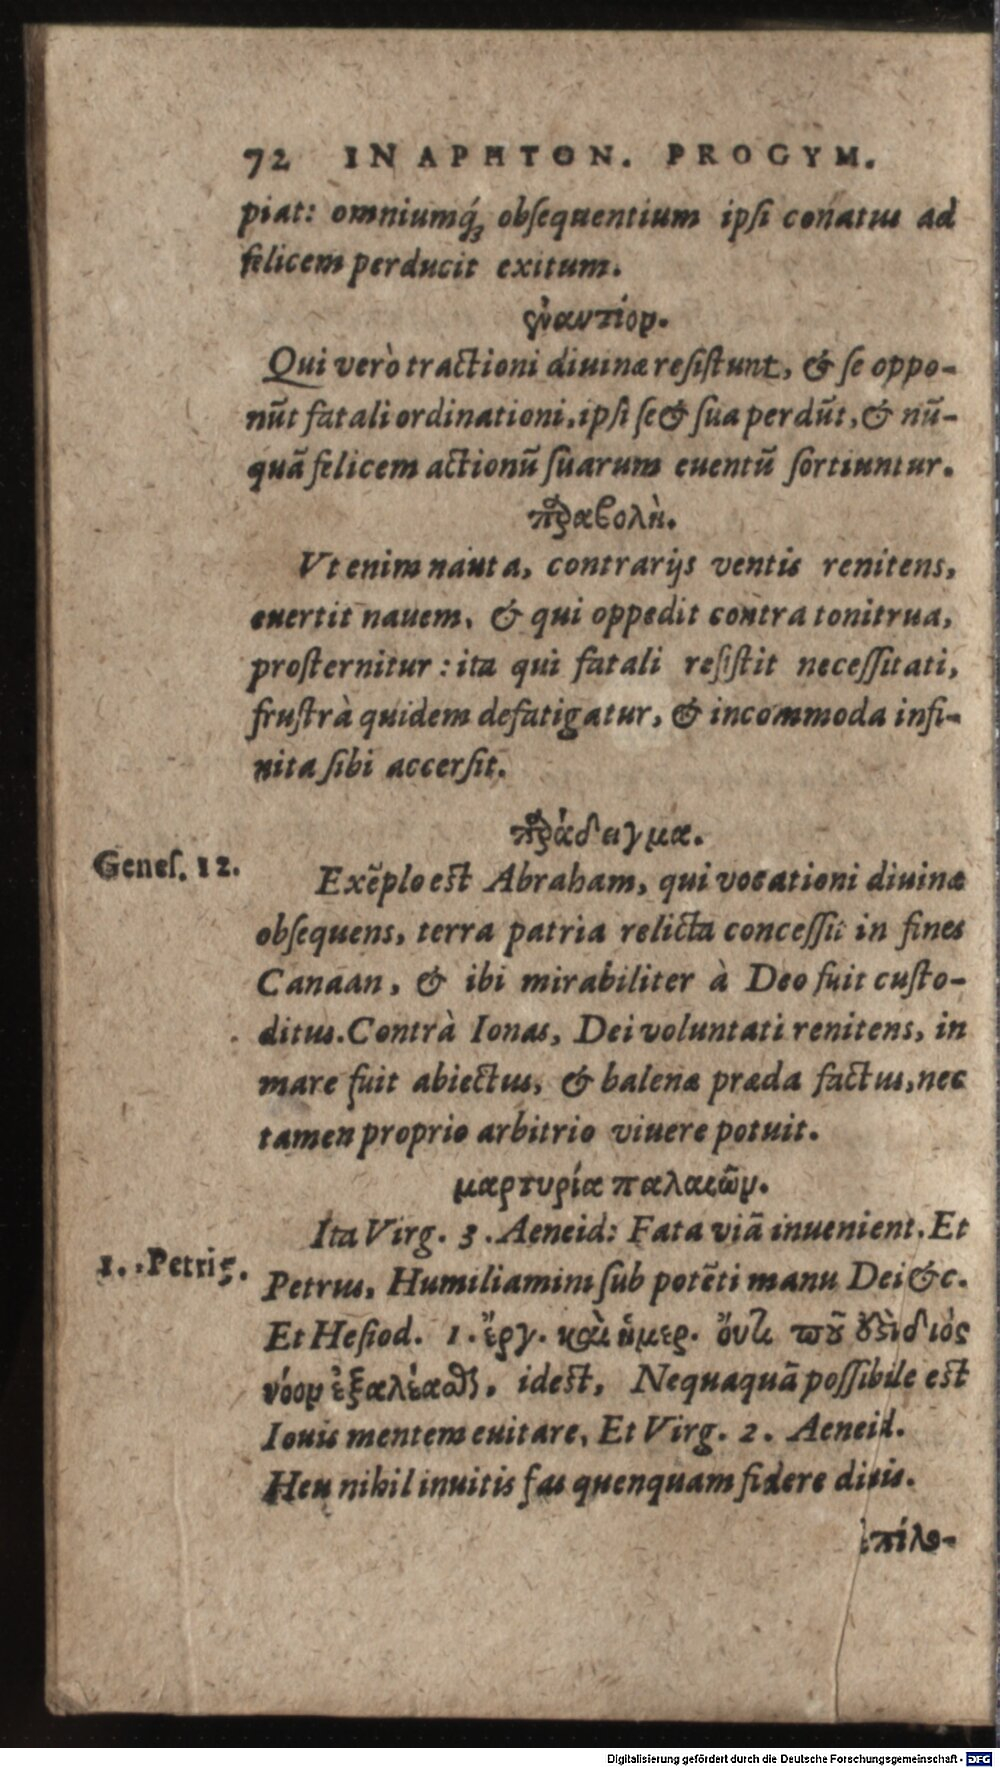 72 IN APHTON. PROGYM.
piat: omniumq́ꝫ obsequentium ipsi conatus ad
felicem perducit exitum.
ἐναντίον.
Qui verò tractioni diuinæ resistunt, & se oppo-
nūt fatali ordinationi, ipsi se & sua perdūt, & nū-
quā felicem actionū suarum euentū sortiuntur.
παραβολὴ.
Vt enim nauta, contrarijs ventis renitens,
euertit nauem, & qui oppedit contra tonitrua,
prosternitur: ita qui fatali resistit necessitati,
frustrà quidem defatigatur, & incommoda infi-
nita sibi accersit.
παράδειγμα.
Genes. 12.
Exēplo est Abraham, qui vocationi diuinæ
obsequens, terra patria relicta concessit in fines
Canaan, & ibi mirabiliter à Deo fuit custo-
ditus. Contrà Ionas, Dei voluntati renitens, in
mare fuit abiectus, & balenæ præda factus, nec
tamen proprio arbitrio viuere potuit.
μαρτυρία παλαιῶν.
Ita Virg. 3. Aeneid: Fata viā inuenient. Et
1. Petri 5.
Petrus, Humiliamini sub potēti manu Dei &c.
Et Hesiod. 1. ἔργ. καὶ ἡμερ. ὄυτι που οὐδὲ διὸς
νόον ἐξαλέασθαι, id est, Nequaquā possibile est
Iouis mentem euitare, Et Virg. 2. Aeneid.
Heu nihil inuitis fas quenquam fidere diuis.
ἐπίλο-
Digitalisierung gefördert durch die Deutsche Forschungsgemeinschaft - DFG